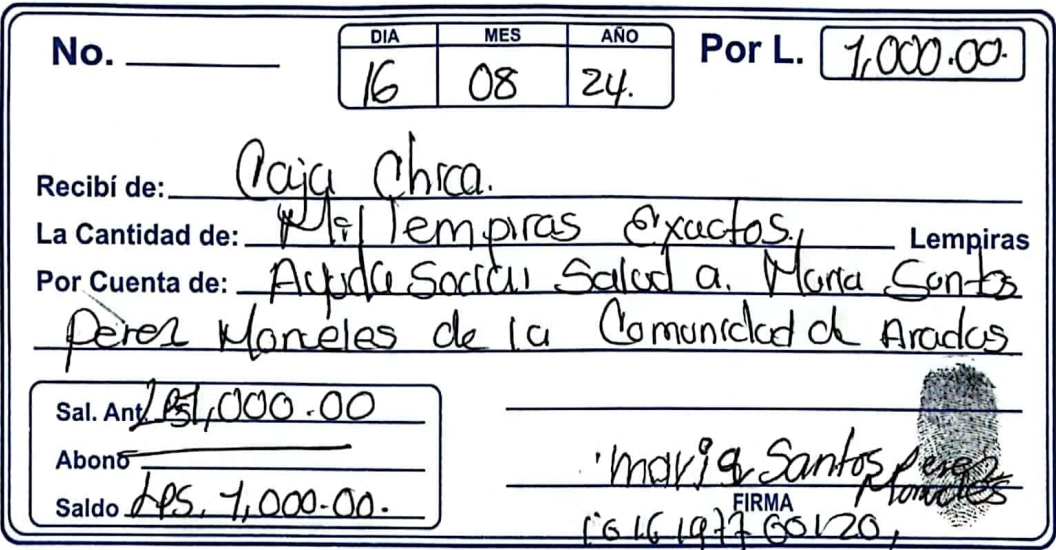 No. DIA MES AÑO Por L. 1,000.00.
16 08 24.
Recibí de: Caja Chica.
La Cantidad de: Mil lempiras Exactos, Lempiras
Por Cuenta de: Ayuda Social Salud a. Maria Santos
Perez Monceles de la Comunidad de Aradas
Sal. Ant Lps1,000.00
Abono
Saldo Lps. 1,000.00.
maria Santos perez
FIRMA